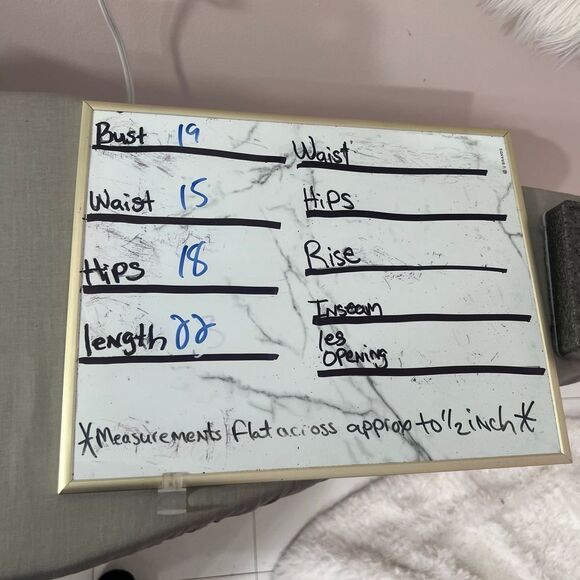 Bust 19
Waist 15
Hips 18
length 22
Waist
Hips
Rise
Inseam
leg
opening
*Measurements flat across approp to 1/2 inch*